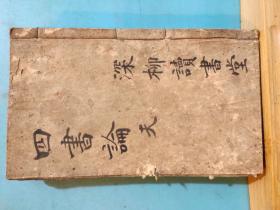 深柳讀書堂
四書論
天